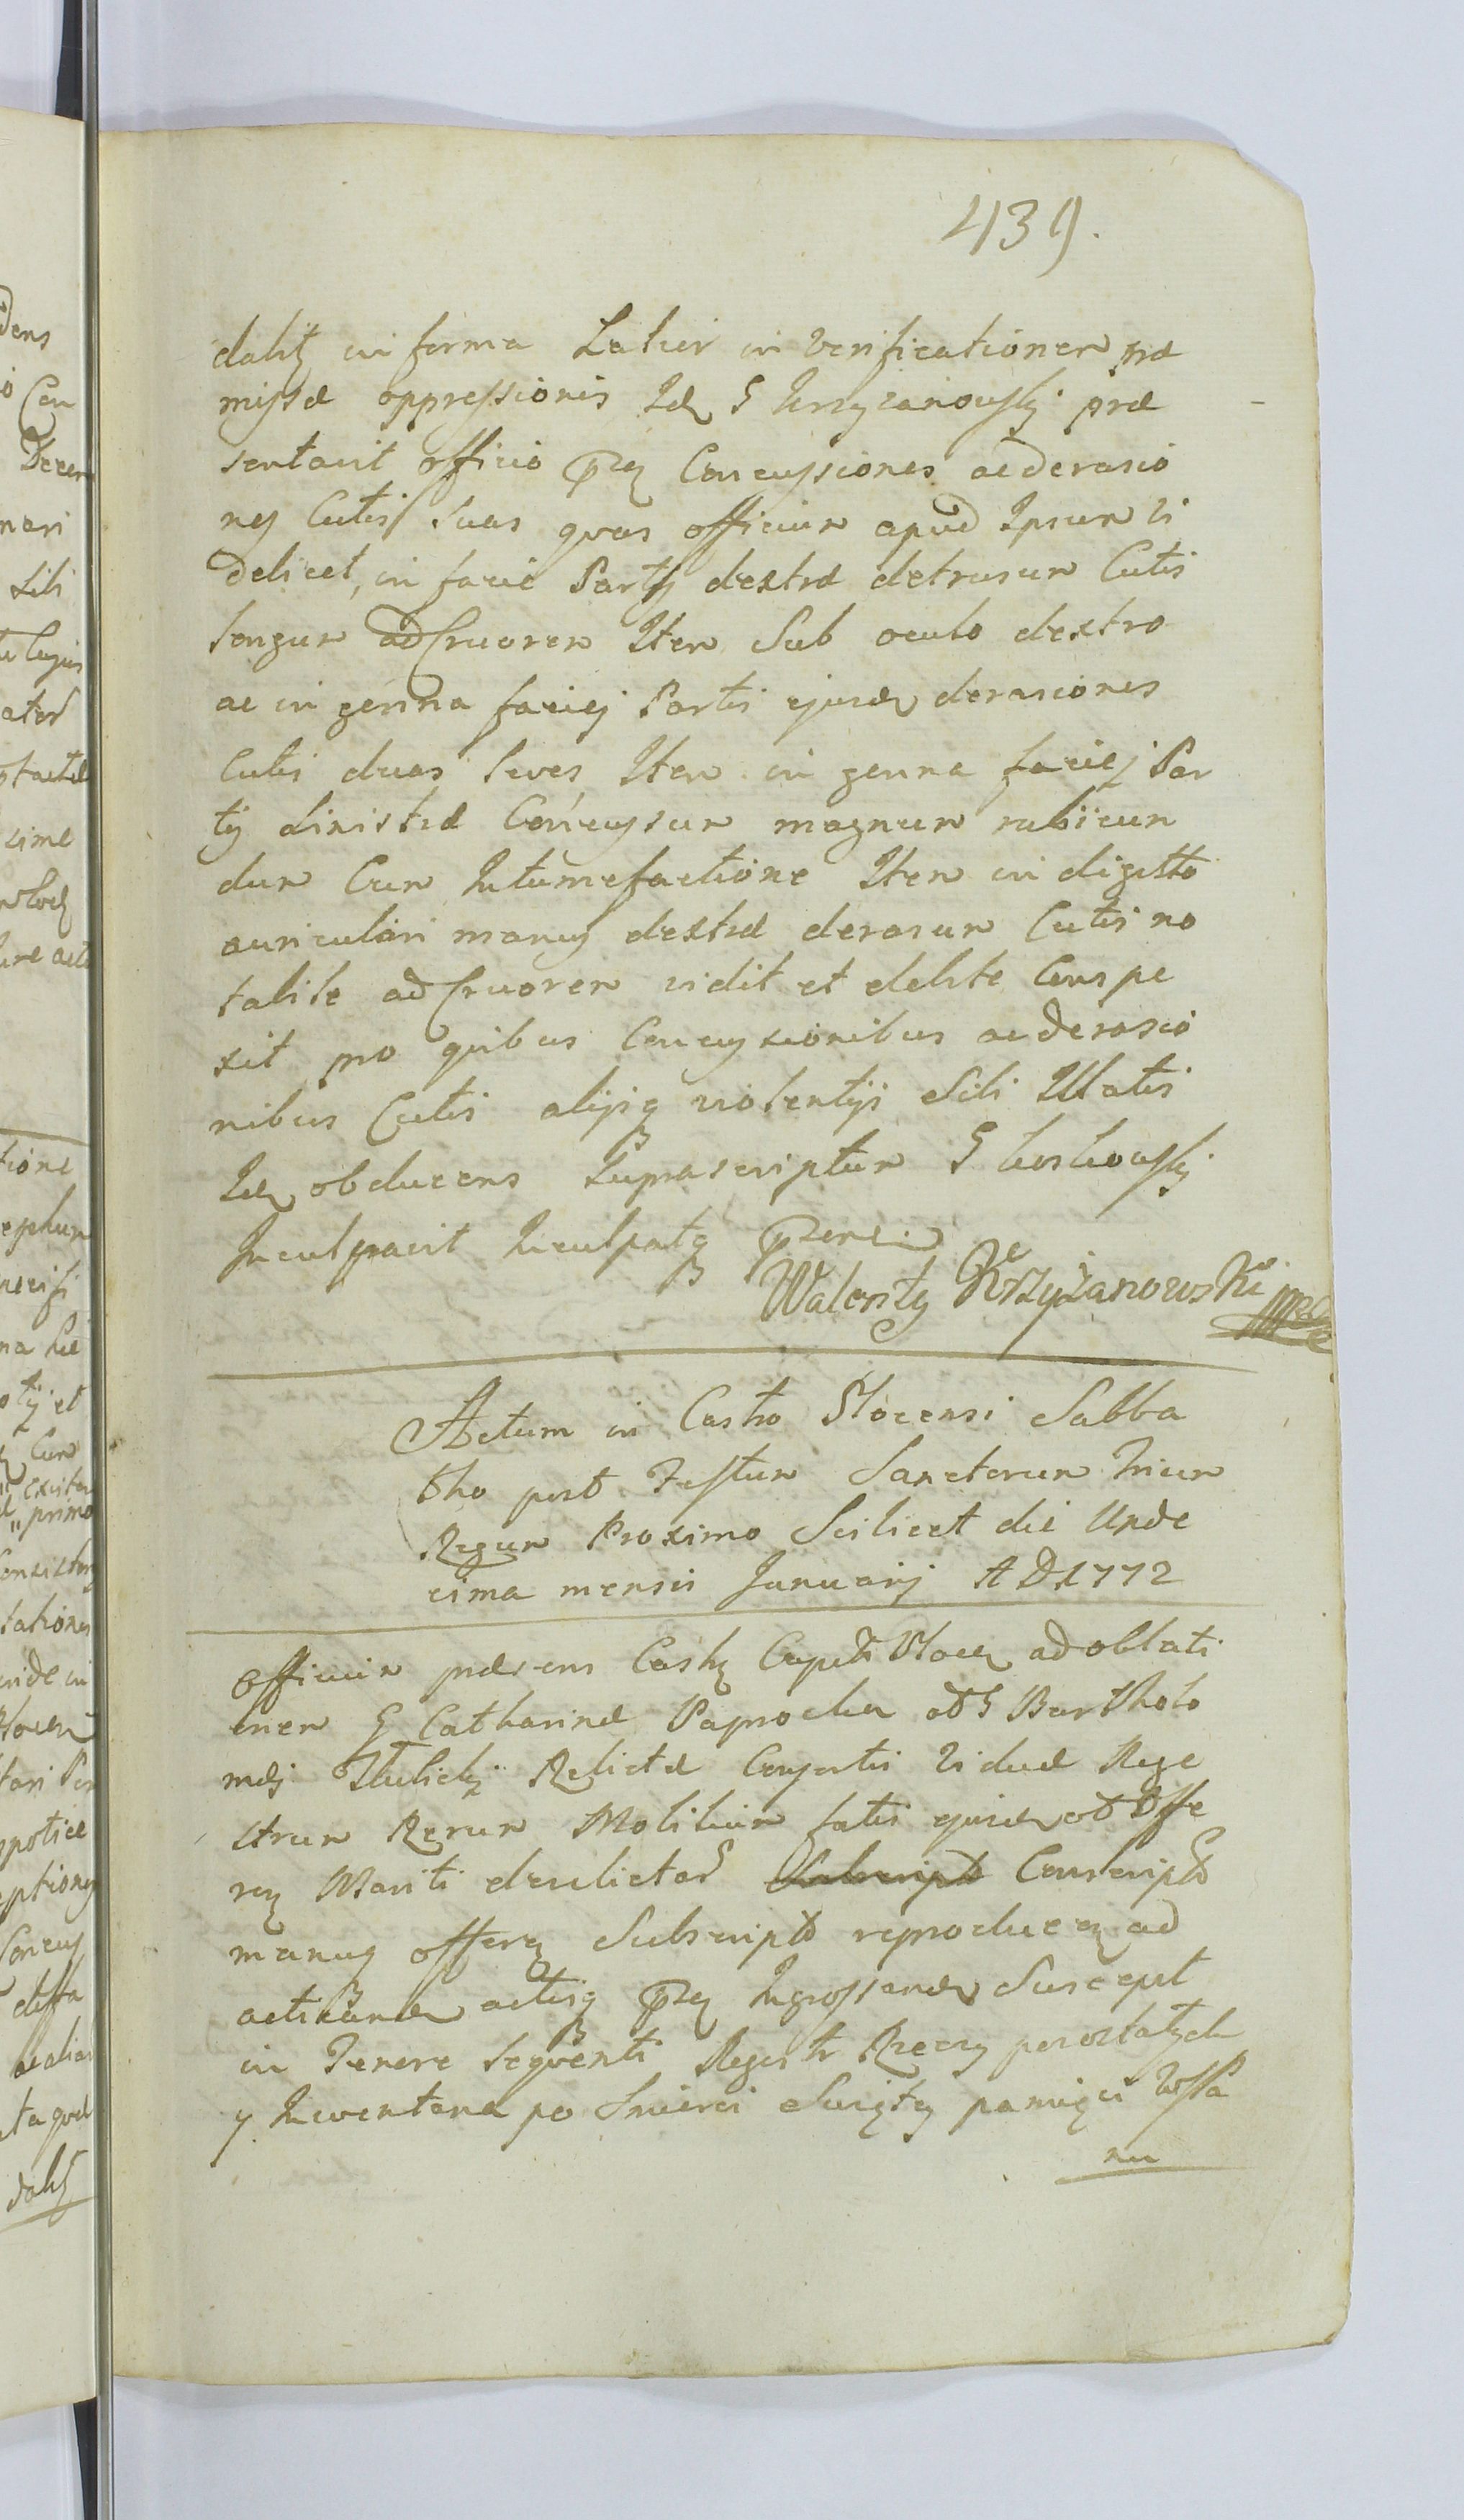 439.
dalitz in forma Latior in Verificationem præ
missæ oppressionis Idem G Krzyzanowskj præ
sentavit officio pntj Concussiones ac derasio
nes Cutis suas quas officium apud Ipsum vi
delicet, in facie Partis dextræ detrusum Cutis
longum ad Cruorem Item Sub oculo dextro
ac in genna faciej Partis ejusdem derasiones
Cutis duas leves Item in genna faciej Par
tis sinistræ Concussum magnum rubicun
dum Cum Intumefactione Item in digitto
auriculari manus dextræ derasum Cutis no
tabile ad Cruorem vidit et debite Conspe
xit pro quibus Concussionibus ac derasio
nibus Cutis alijsq violentijs Sibi Illatis
Idem obducens Suprascriptum G
Inculpavit Inculpatq pnter
Walenty Krzyżanowski mp
Actum in Castro Plocensi Sabba
tho post Festum Sanctorum Trium
Regum Proximo Scilicet die Unde
cima mensis Januarij AD 1772
Officium præsens Castr Capit Plocen ad oblati
onem G Catharinæ Paprocka olim G Bartholo
mæj Relictæ Consortis Viduæ Rege
strum Rerum Mobilium fatis ejusdem ob Offe
ren Mariti derelictar Subscript Conscript
manuq offeren Subscript reproducen ad
acticand actisq pntj Ingrossand Suscepit
in Tenore Sequenti Regestr Rzeczy pozostałych
y Inwentarza po Smierci Swiętey pamięci WJPa
nu